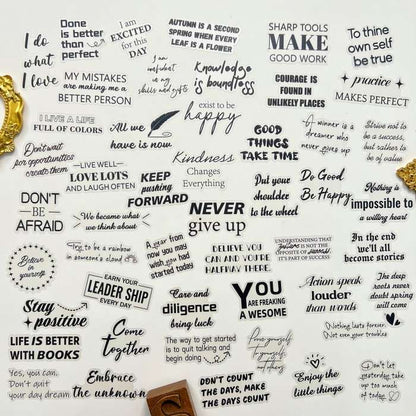 I do
what
I love
Done
is better
than
perfect
I am
EXCITED
for this
DAY
AUTUMN IS A SECOND
SPRING WHEN EVERY
LEAF IS A FLOWER
SHARP TOOLS
MAKE
GOOD WORK
To thine
own self
be true
MY MISTAKES
are making me a
BETTER PERSON
I am
confident
in my
skills and gifts
Knowledge
is boundless
COURAGE IS
FOUND IN
UNLIKELY PLACES
practice
MAKES PERFECT
I LIVE A LIFE
FULL OF COLORS
All we
have is now
exist to be
happy
GOOD
THINGS
TAKE TIME
A winner is a
dreamer who
never gives up
Strive not to
be a success,
but rather to
be of value
Don't wait
for opportunities
create them
LIVE WELL
LOVE LOTS
AND LAUGH OFTEN
KEEP
pushing
FORWARD
Kindness
Changes
Everything
Put your
shoulder
to the wheel
Do Good
Be Happy
Nothing is
impossible to
a willing heart
DON'T
BE
AFRAID
We became what
we think about
NEVER
give up
Believe
in
yourself
Try to be a rainbow
in someone's cloud
A year from
now you may
wish you had
started today
BELIEVE YOU
CAN AND YOU'RE
HALFWAY THERE
UNDERSTANDING THAT
IS NOT THE
OPPOSITE OF
IT'S PART OF SUCCESS
In the end
we'll all
become stories
EARN YOUR
LEADERSHIP
EVERY DAY
Care and
diligence
bring luck
YOU
ARE FREAKING
AWESOME
Action speak
louder
than words
The deep
roots never
doubt spring
will come
Stay
positive
LIFE IS BETTER
WITH BOOKS
Come
Together
The way to get started
is to quit talking and
begin doing
Nothing lasts forever,
Not even your troubles
Yes, you can,
Don't quit
your day dream
Embrace
the unknown
DON'T COUNT
THE DAYS, MAKE
THE DAYS COUNT
Enjoy the
little things
Don't let
yesterday take
up too much
of today